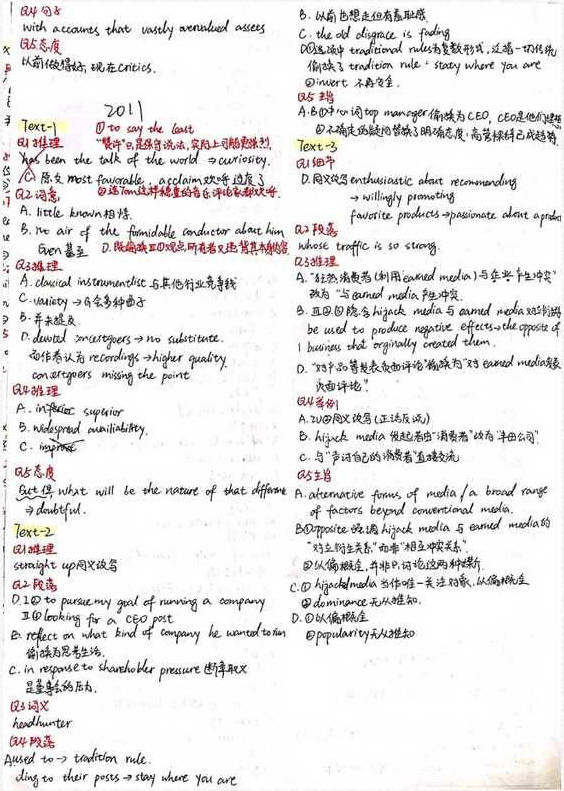 Q4 句子
with accounts that vastly overvalued assets
Q5 态度
以前做得好, 现在critics.
2011
Text-1
① to say the least
Q1 推理
has been the talk of the world → curiosity.
C. 原文 most favorable, acclaim欢呼过度了
Q2 词意
A. little known相悖.
B. no air of the formidable conductor about him
Even 甚至
Q3 推理
A. classical instrumentlist与其他行业竞争钱
C. variety →
B. 并未提及
D. devoted concertgoers → no substitute.
作者认为 recordings → higher quality
concertgoers missing the point
Q4 推理
A. inferior superior
B. widespread availiability.
C. improve
Q5 态度
But 但, what will be the nature of that difference
→ doubtful.
Text-2
Q1 推理
straight up同义改写
Q2 段落
D. I① to pursue my goal of running a company
II① looking for a CEO post
B. reflect on what kind of company he wanted to run
偷换为思考生活.
C. in response to shareholder pressure 断章取义
是董事会的压力.
Q3 词义
headhunter
Q4 段落
A. used to → tradition rule.
ding to their posts → stay where you are
B. 以前也想走但有羞耻感
C. the old disgrace is fading
D. ①选项中 traditional rules为复数形式, 泛指一切传统
偷换了 tradition rule: statay where you are
② invert 不再安全.
Q5 主旨
A.B①中心词top manager偷换为CEO, CEO是他们
Text-3
Q1 细节
D. 同义改写 enthusiastic about recommending
→ willingly promoting
favorite products → passionate about a product
Q2 段落
whose traffic is so strong.
Q3 推理
A. "狂热消费者(利用earned media)与企业产生冲突"
改为 "与 earned media产生冲突.
B. hijack media 与 earned media
be used to produce negative effects → the opposite of
1 business that orginally created them.
D. "对产品等发表负面评论"偷换为"对 earned media发表
负面评论".
Q4 举例
A. IV④同义改写(正话反说)
B. hijack media 发起者由"消费者"改为"丰田公司"
C. 与"声讨自己的消费者"直接交流
Q5 主旨
A. alternative forms of media / a broad range
of factors beyond conventional media.
B①opposite强调hijack media 与 earned media的
"对立衍生关系"而非"相互冲突关系".
②以偏概全, 并非只讨论这两种媒介.
C. ① hijacked media 当作唯一关注对象, 以偏概全
② dominance 无从推知.
D. ①以偏概全
② popularity无从推知